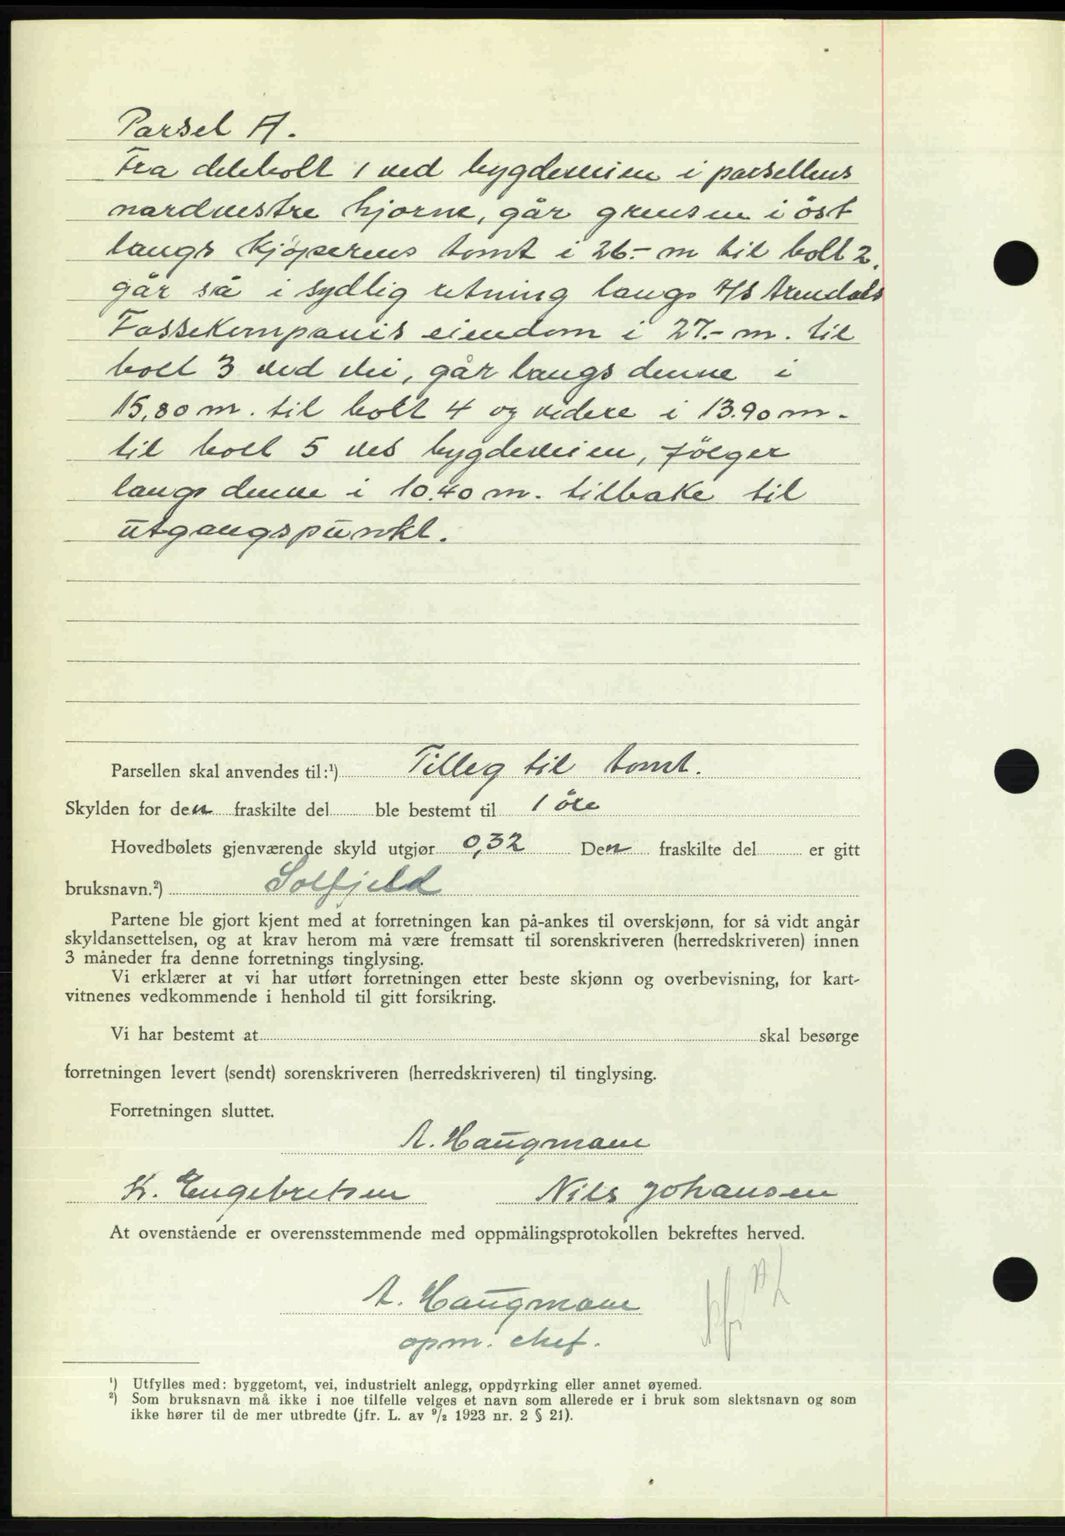 Parsel A.
Fra delebolt 1 ved bygdeveien i parsellens
nordvestre hjørne, går grensen i öst
langs kjöperens tomt i 26.- m til bolt 2,
går så i sydlig retning langs A/S Arendals
Fossekompanis eiendom i 27.- m. til
bolt 3 ved vei, går langs denne i
15,80 m. til bolt 4 og videre i 13.90 m.
til bolt 5 ved bygdeveien, fölger
langs denne i 10.40 m. tilbake til
utgangspunkt.
Parsellen skal anvendes til:¹) Tilleg til tomt.
Skylden for den fraskilte del ble bestemt til 1 öre
Hovedbølets gjenværende skyld utgjør 0,32 Den fraskilte del er gitt
bruksnavn.²) Solfjeld
Partene ble gjort kjent med at forretningen kan på-ankes til overskjønn, for så vidt angår
skyldansettelsen, og at krav herom må være fremsatt til sorenskriveren (herredskriveren) innen
3 måneder fra denne forretnings tinglysing.
Vi erklærer at vi har utført forretningen etter beste skjønn og overbevisning, for kart-
vitnenes vedkommende i henhold til gitt forsikring.
Vi har bestemt at skal besørge
forretningen levert (sendt) sorenskriveren (herredskriveren) til tinglysing.
Forretningen sluttet.
A. Haugmann
K. Engebretsen Nils Johansen
At ovenstående er overensstemmende med oppmålingsprotokollen bekreftes herved.
A. Haugmann
opm. chef.
¹) Utfylles med: byggetomt, vei, industrielt anlegg, oppdyrking eller annet øyemed.
²) Som bruksnavn må ikke i noe tilfelle velges et navn som allerede er i bruk som slektsnavn og som
ikke hører til de mer utbredte (jfr. L. av 9/2 1923 nr. 2 § 21).